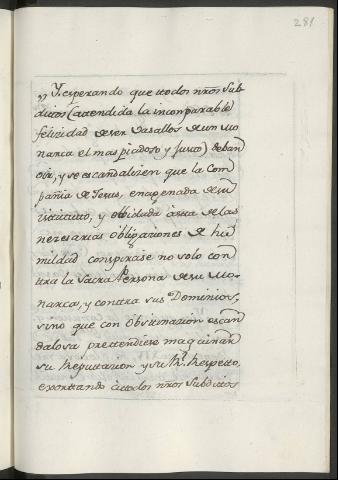 281
y esperando que todos nr̃os Sub-
ditos (atendida la incomparable
felizidad de ser Vasallos de un mo
narca el mas piadoso y Justo) deban
oir, y se escandalizen que la Com
pañia de Jesus, enagenada de su
instituto, y olvidada à esta de las
nezesarias obligaziones de hu
mildad conspirase no solo con
tra la Sacra Persona de su Mo-
narca, y contra sus Dominios,
sino que con obstinazion escan
dalosa pretendiese maquinar
su Reputazion y su Rl. Respeto,
exortando à todos nr̃os Subditos